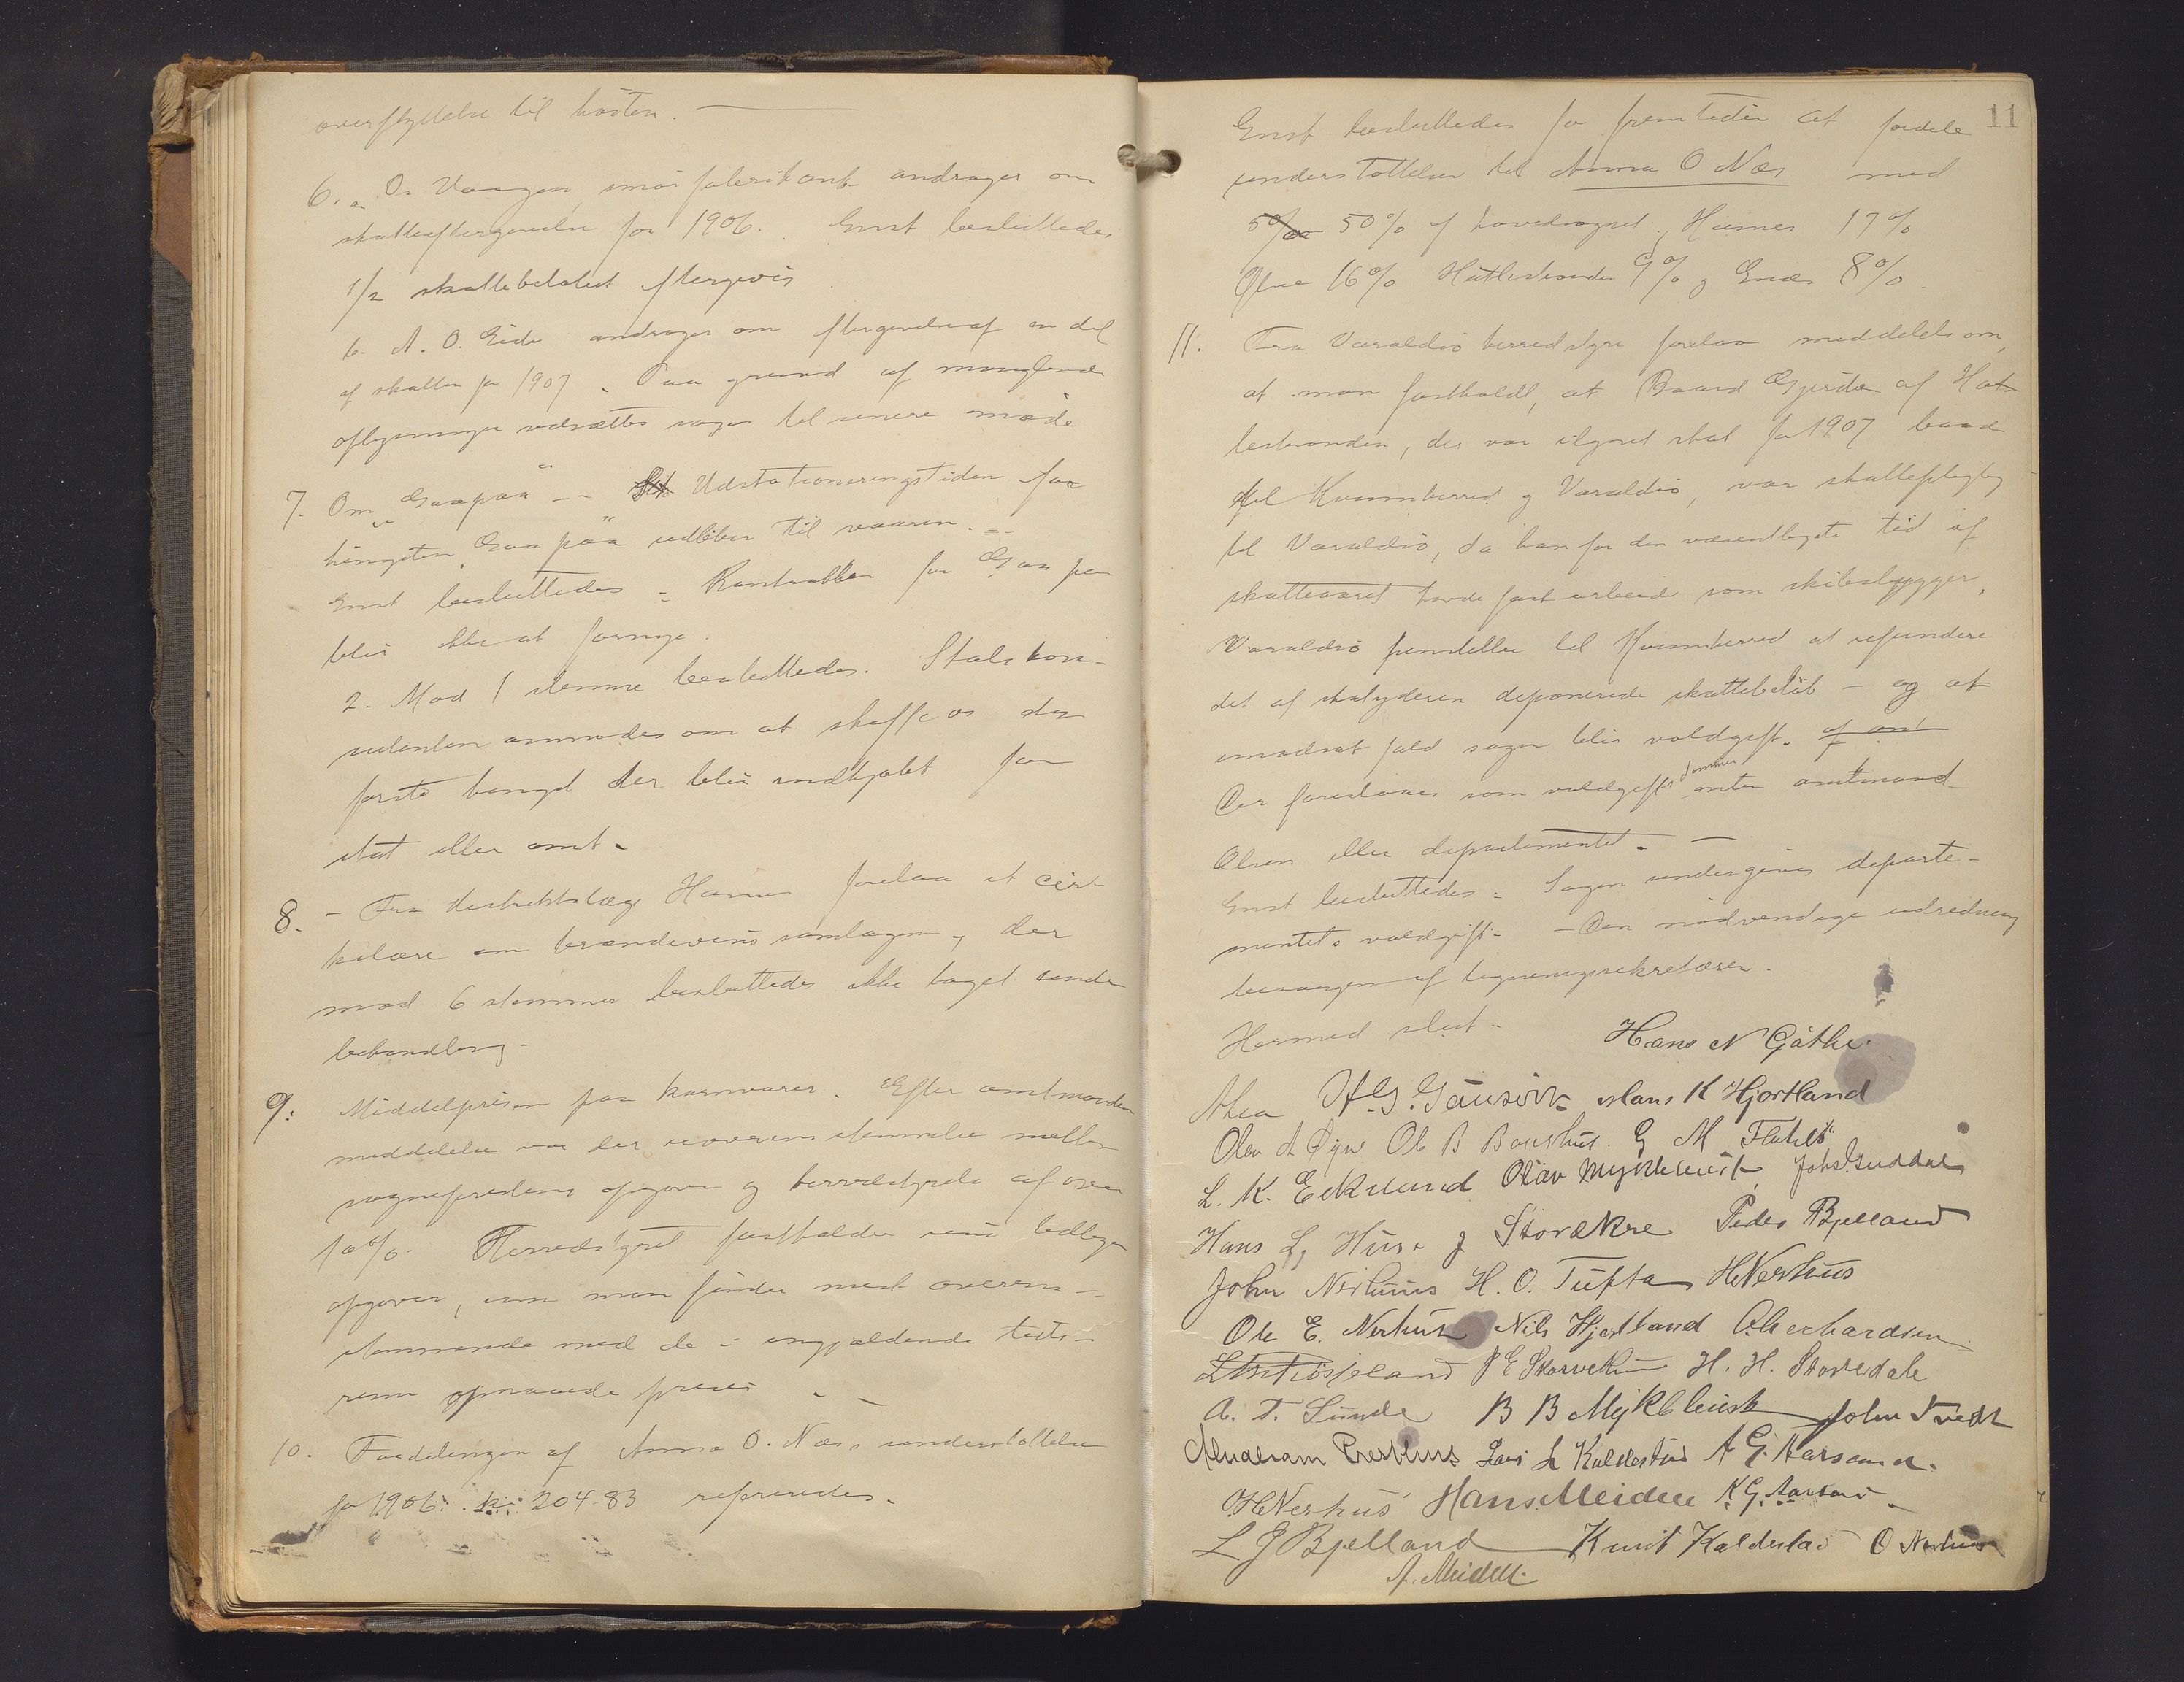 overflyttelse til høsten. —
6. a. O. Vaagen, smørfabrikant andrager om
skatteeftergivelse for 1906. Enst besluttedes
1/2 skattebeløbet eftergivis.
b. A. O. Eide andrager om eftergivelse af en del
af skatten for 1907. Paa grund af manglende
oplysninger udsættes sagen til senere møde
7. Om "Gaapaa" -- Udstationeringstiden for
hingsten "Gaapaa" udløber til vaaren. --
Enst besluttedes = Kontrakten for Gaapaa
blir ikke at fornye.
2. Mod 1 stemme besluttedes. Statskon-
sulenten anmodes om at skaffe os den
første hingst der blir indkjøbt for
stat eller amt.
8. - Fra distriktslæge Hanner forelaa et cir-
kulære om brændevinssamlagene, der
mod 6 stemmer besluttedes ikke taget under
behandling.
9. Middelprisen paa kornvarer. Efter amtmandens
meddelelse var der uoverensstemmelse mellem
sognepræstens opgave og herredstyrets af over
10%. Herredstyret fastholder sine tidligere
opgaver, som man finder mest overens-
stemmende med de i vngjældende tids-
rum opnaaede priser. —
10. Fordelingen af Anna O. Næs understøttelse
for 1906: kr: 204.83 refereredes.
11
Enst besluttedes for fremtiden at fordele
understøttelsen til Anna O Næs med
50% 50% af hovedsognet, Hames 17%
Ølve 16% Hatlestranden 9% og Enæs 8%.
11. Fra Varaldsø herredstyre forelaa meddelelse om,
at man fastholdt, at Baard Gjerde af Hat-
lestranden, der var ilignet skat for 1907 baade
til Kvamherred og Varaldsø, var skattepligtig
til Varaldsø, da han for den væsentligste tid af
skatteaaret havde fast arbeide som skibsbygger,
Varaldsø henstiller til Kvamherred at refundere
det af skatyderen deponerede skattebeløb - og at
imodsat fald sagen blir voldgift. af amt
Der foreslaaes som voldgiftsdommer enten amtmand
Olsen eller departementet. —
Enst besluttedes = Sagen undergives departe-
mentets voldgift. - Den nødvendige udredning
besørges af ligningssekretæren.
Hermed slut.
Hans N Gåthe.
H.G. Gausvik Hans K Hjortland
Olav A Øyre Ole B Bouthus. G M Flatebø
L. K. Eikeland Olav Myklebust Johs. Guddal
Hans L. Huse J Storækre Peder Bjelland
John Nerhuus H. O. Tufta HNerhus
Ole E. Nerhus Nils Hjortland O. Gerhardsen.
J E Skorvethun H. H. Storedale
A. T. Sunde B B Myklebust John Tvedt
Abraham Presthus Lars L Kaldestad A G. Aarsand.
HNerhus Hans Meidell K G. Aarsand
L J Bjelland Knut Kaldestad O Nerhus
A. Meidell.